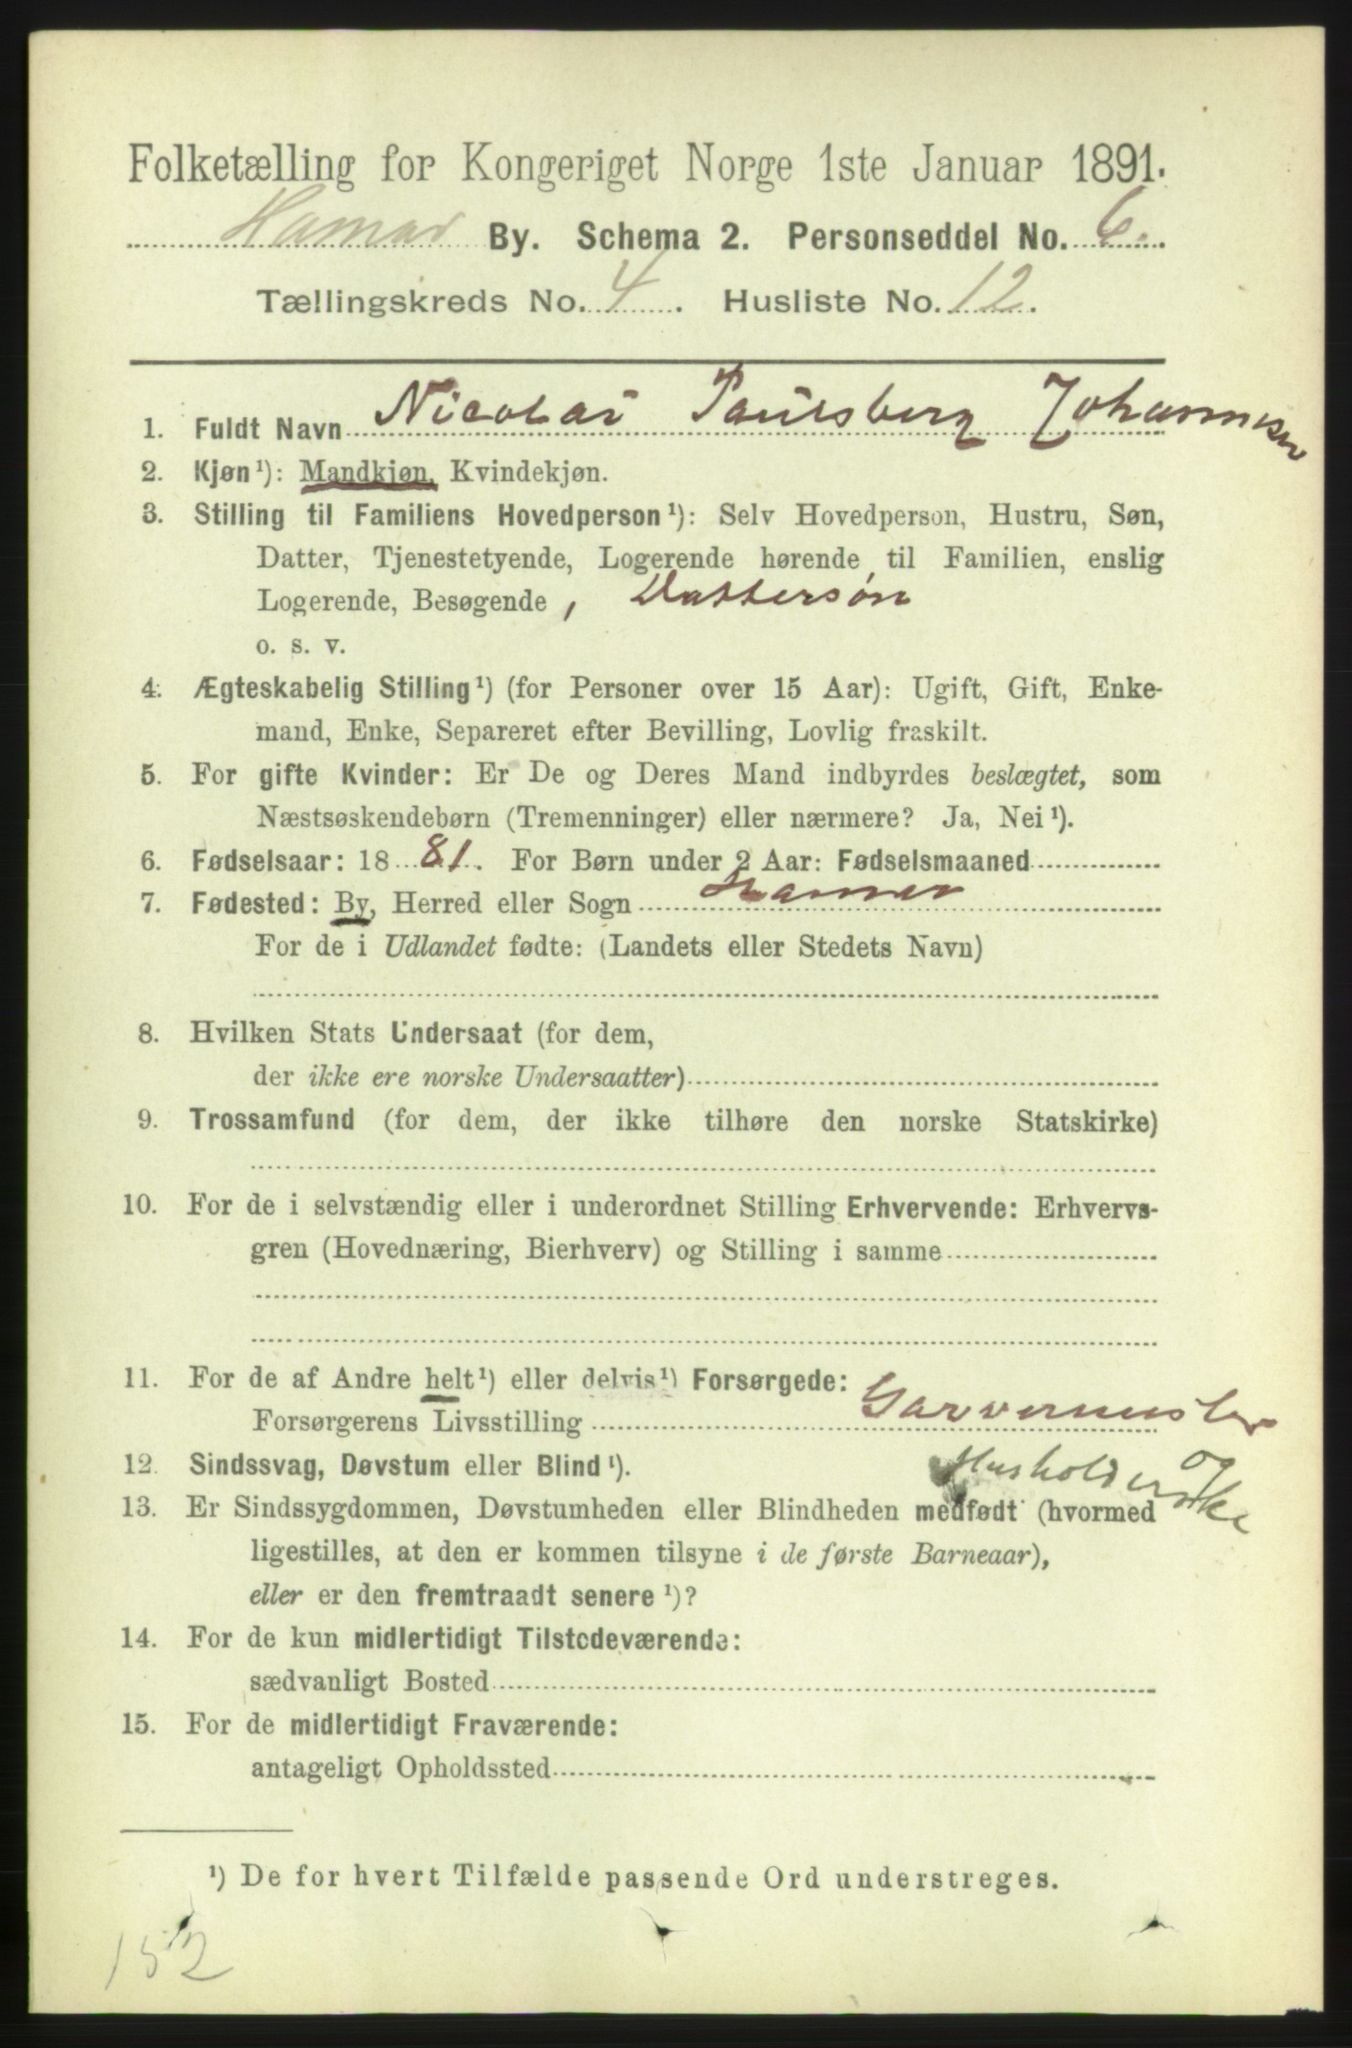 Folketælling for Kongeriget Norge 1ste Januar 1891.
Hamar By. Schema 2. Personseddel No. 6.
Tællingskreds No. 4. Husliste No. 12.
1. Fuldt Navn Nicolai Paulsberg Johannesen
2. Kjøn¹): Mandkjøn, Kvindekjøn.
3. Stilling til Familiens Hovedperson¹): Selv Hovedperson, Hustru, Søn,
Datter, Tjenestetyende, Logerende hørende til Familien, enslig
Logerende, Besøgende, Dattersøn
o. s. v.
4. Ægteskabelig Stilling¹) (for Personer over 15 Aar): Ugift, Gift, Enke-
mand, Enke, Separeret efter Bevilling, Lovlig fraskilt.
5. For gifte Kvinder: Er De og Deres Mand indbyrdes beslægtet, som
Næstsøskendebørn (Tremenninger) eller nærmere? Ja, Nei¹).
6. Fødselsaar: 1881. For Børn under 2 Aar: Fødselsmaaned
7. Fødested: By, Herred eller Sogn Hamar
For de i Udlandet fødte: (Landets eller Stedets Navn)
8. Hvilken Stats Undersaat (for dem,
der ikke ere norske Undersaatter)
9. Trossamfund (for dem, der ikke tilhøre den norske Statskirke)
10. For de i selvstændig eller i underordnet Stilling Erhvervende: Erhvervs-
gren (Hovednæring, Bierhverv) og Stilling i samme
11. For de af Andre helt¹) eller delvis¹) Forsørgede:
Forsørgerens Livsstilling Garvermester
12. Sindssvag, Døvstum eller Blind¹).
13. Er Sindssygdommen, Døvstumheden eller Blindheden medfødt (hvormed
ligestilles, at den er kommen tilsyne i de første Barneaar),
eller er den fremtraadt senere¹)?
14. For de kun midlertidigt Tilstedeværende:
sædvanligt Bosted
15. For de midlertidigt Fraværende:
antageligt Opholdssted
¹) De for hvert Tilfælde passende Ord understreges.
152